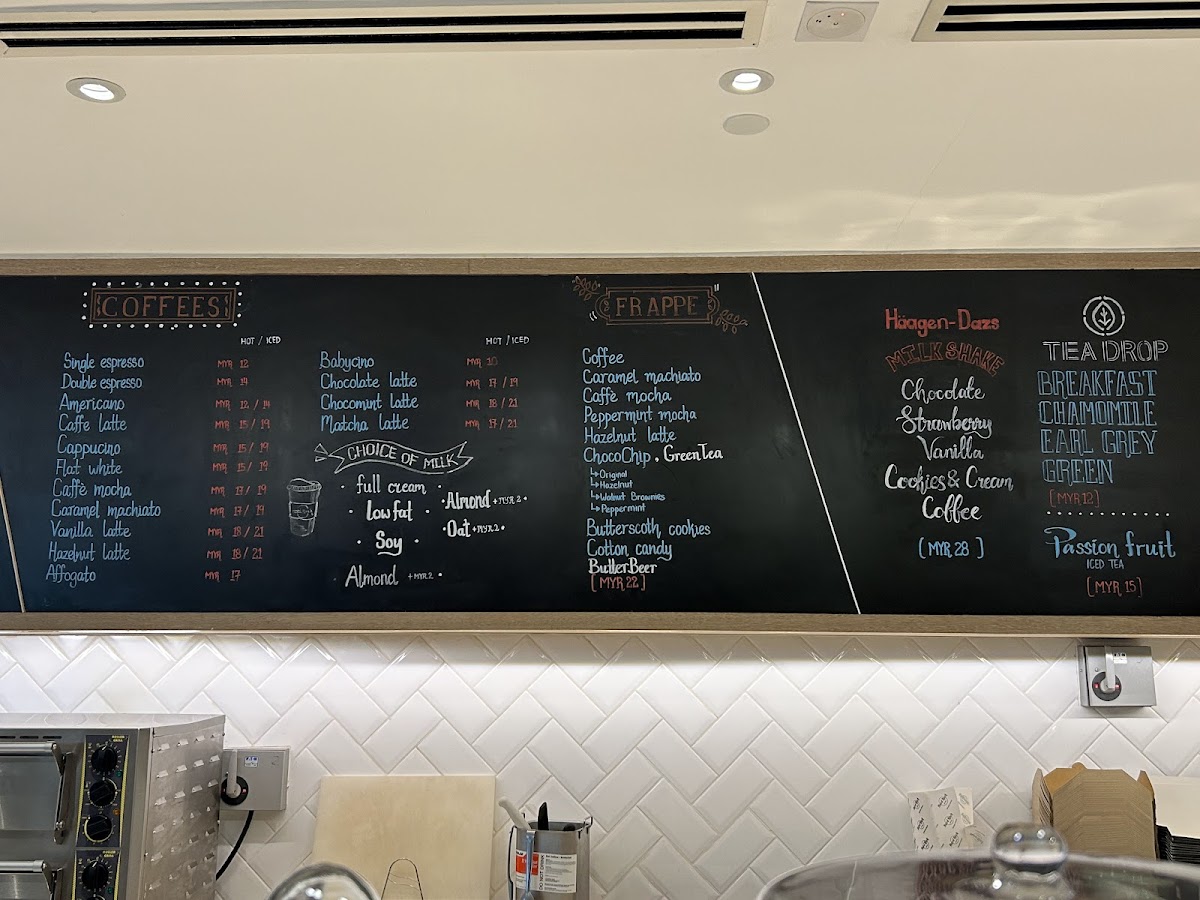 COFFEES
HOT / ICED
Single espresso MYR 12
Double espresso MYR 14
Americano MYR 12 / 14
Caffe latte MYR 15 / 19
Cappucino MYR 15 / 19
Flat white MYR 15 / 19
Caffè mocha MYR 17 / 19
Caramel machiato MYR 17 / 19
Vanilla latte MYR 18 / 21
Hazelnut latte MYR 18 / 21
Affogato MYR 17
HOT / ICED
Babycino MYR 10
Chocolate latte MYR 17 / 19
Chocomint latte MYR 18 / 21
Matcha latte MYR 17 / 21
CHOICE OF MILK
full cream
Low fat
Soy
Almond +MYR 2
Almond +MYR 2
Oat +MYR 2
FRAPPE
Coffee
Caramel machiato
Caffè mocha
Peppermint mocha
Hazelnut latte
ChocoChip . Green Tea
Original
Hazelnut
Walnut Brownies
Peppermint
Butterscoth cookies
Cotton candy
ButterBeer
[MYR 22]
Häagen-Dazs
MILKSHAKE
Chocolate
Strawberry
Vanilla
Cookies & Cream
Coffee
[MYR 28]
TEA DROP
BREAKFAST
CHAMOMILE
EARL GREY
GREEN
[MYR 12]
Passion fruit
ICED TEA
[MYR 15]